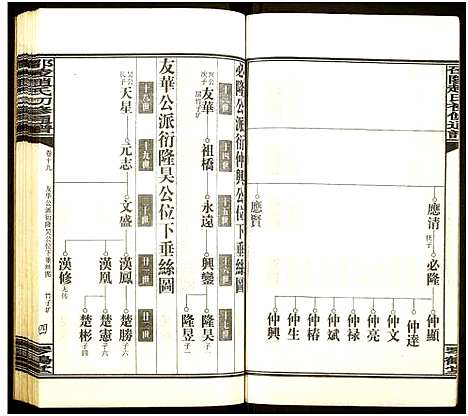 應清
次子
必隆
仲顯
仲達
仲文
仲亮
仲禄
仲斌
仲椿
仲生
仲興
應賢
必隆公派衍仲興公位下垂絲圖
十三世
十四世
十五世
十六世
十七世
友華
祖橋
永遠
興鑾
隆昊 子一
隆昱 子二
友華公派衍隆昊公位下垂絲圖
十八世
十九世
二十世
廿一世
廿二世
昊公長子
天星
元志
文盛
漢鳳
漢凰
漢修 无传
楚勝 子六
楚憲 子二
楚彬 子二
卷十九
友華公派衍隆昊公位下垂絲圖
竹子圹
四